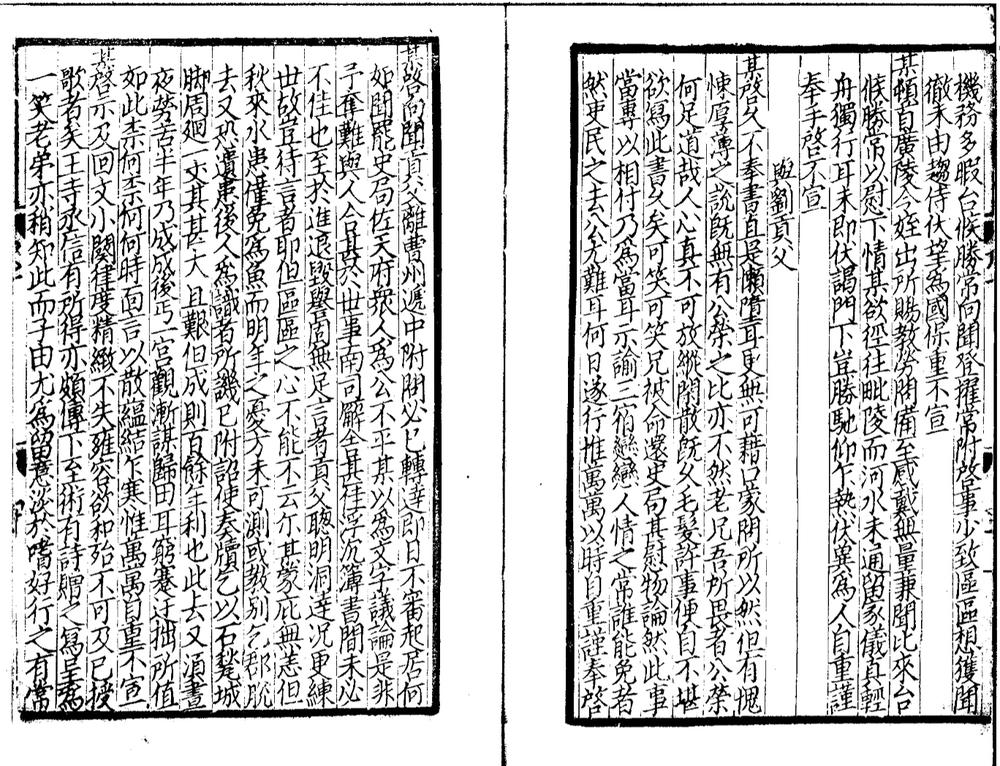 機務多暇台候勝常向聞登擢常附啓事少致區區想獲聞
徹末由趨侍伏望為國保重不宣
某頓首廣陵令姪出所賜教勞問備至感戴無量兼聞比來台
候勝常以慰下情某欲徑往毗陵而河水未通留家儀真輕
舟獨行耳未即伏謁門下豈勝馳仰乍熱伏冀為人自重謹
奉手啓不宣
與劉貢父
某啓久不奉書直是懶墮耳更無可藉口蒙問所以然但有愧
悚厚薄之說既無有公榮之比亦不然老兄吾所畏者公榮
何足道哉人心真不可放縱閑散既久毛髮許事便自不堪
欲寫此書久矣可笑可笑兄被命還史局甚慰物論然此事
當專以相付乃為當耳示諭三宿戀戀人情之常誰能免者
然吏民之去公尤難耳何日遂行惟萬萬以時自重謹奉啓
某啓向聞貢父離曹州遞中附問必已轉達即日不審起居何
如聞罷史局佐天府衆人為公不平某以為文字議論是非
予奪難與人合甚於世事南司解舍甚佳浮沉簿書間未必
不佳也至於進退毀譽固無足言者貢父聰明洞達況更練
世故豈待言者耶但區區之心不能不云尔某蒙庇無恙但
秋來水患僅免為魚而明年之憂方未可測或教別乞郡脫
去又恐遺患後人為識者所譏已附詔使奏牘乞以石甃城
脚周迴一丈其甚大且艱但成則百餘年利也此去又湏晝
夜勞苦半年乃成成後丐一宮觀漸謀歸田耳窮蹇迂拙所值
如此柰何柰何何時面言以散蘊結乍寒惟萬萬自重不宣
某啓示及回文小闋律度精緻不失雍容欲和殆不可及已授
歌者矣王寺丞信有所得亦頗傳下至術有詩贈之寫呈為
一笑老弟亦稍知此而子由尤為留意淡於嗜好行之有常